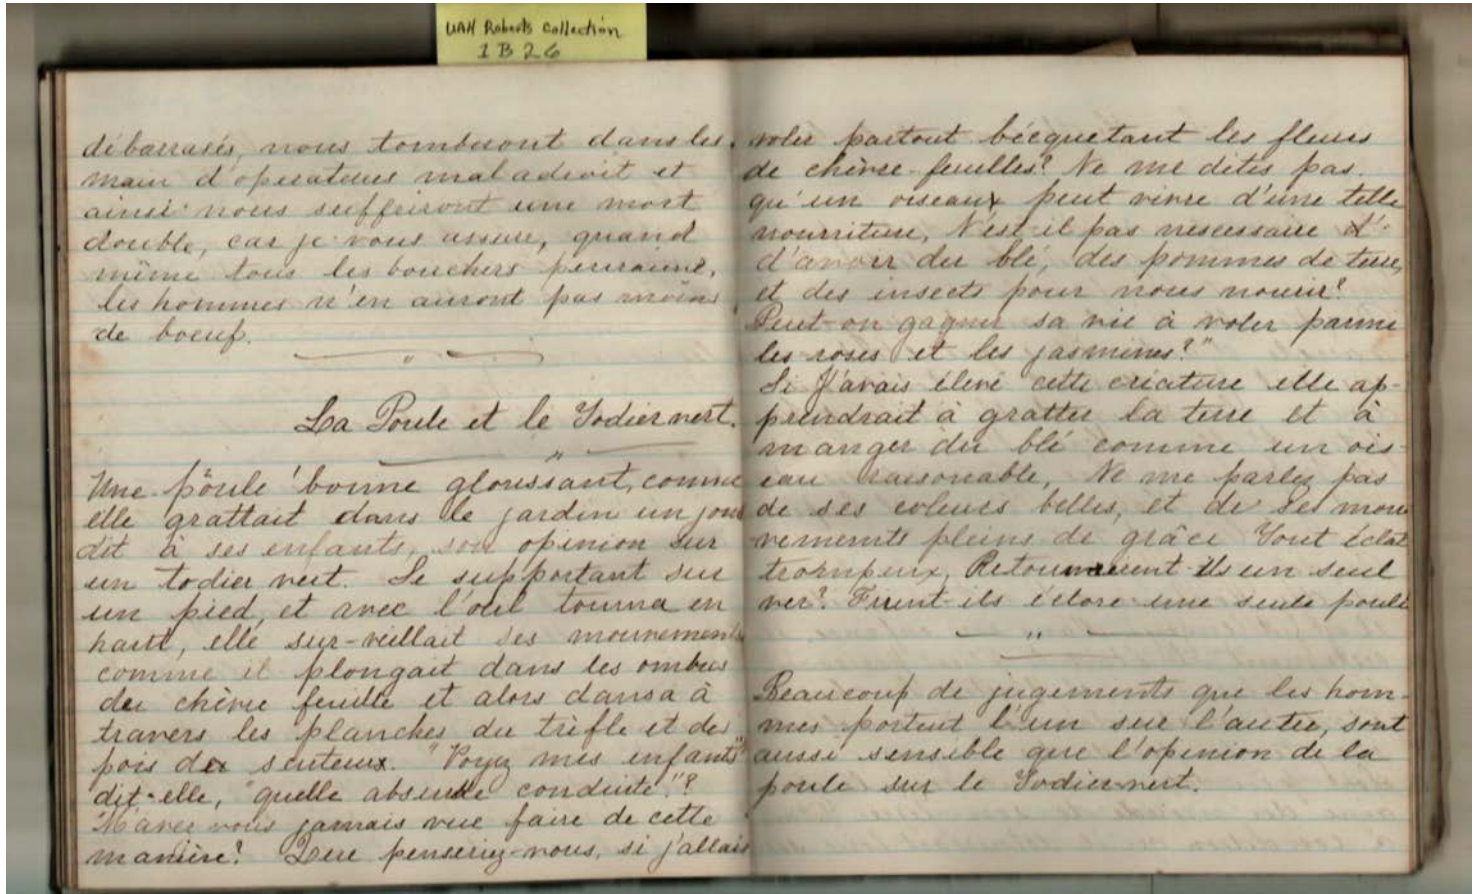 UAH Roberts Collection
1 B 26
débarrasés, nous tomberont dans les
main d'operateurs maladroit et
ainsi nous suffriront une mort
double, car je vous assure, quand
même tous les bouchers periraient,
les hommes n'en auront pas moins
de boeuf.
La Poule et le Todier vert.
Une poule bonne gloussant, comme
elle grattait dans le jardin un jour
dit à ses enfants, son opinion sur
un todier vert. Se supportant sur
un pied, et avec l'oeil tourna en
haut, elle sur-veillait ses mouvements
comme il plongait dans les ombres
du chèvre feuille et alors dansa à
travers les planches du trèfle et des
pois de senteur. "Voyez mes enfants"
dit-elle, "quelle absurde conduite."?
M'avez vous jamais vue faire de cette
manière? Que penseriez-vous, si j'allais
voler partout bécquetant les fleurs
de chèvre-feuilles? Ne me dites pas
qu'un oiseau peut vivre d'une telle
nourriture, N'est-il pas nescessaire d'
d'avoir du blé, des pommes de terre,
et des insects pour nous nourir?
Peut-on gagner sa vie à voler parmi
les roses et les jasmines?"
Si J'avais élevé cette créature elle ap-
prendrait à gratter la terre et à
manger du blé comme un ois-
eau raisonable, Ne me parlez pas
de ses coleurs belles, et de ses mou
vements pleins de grâce Tout éclat
trompeux, Retournerent-ils un seul
ver? Firent-ils éclore une seule poule
Beaucoup de jugements que les hom-
mes portent l'un sur l'autre, sont
aussi sensible que l'opinion de la
poule sur le Todier vert.